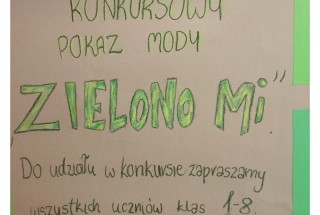 KONKURSOWY
POKAZ MODY
"ZIELONO Mi"
Do udziału w konkursie zapraszamy
wszystkich uczniów klas 1-8.